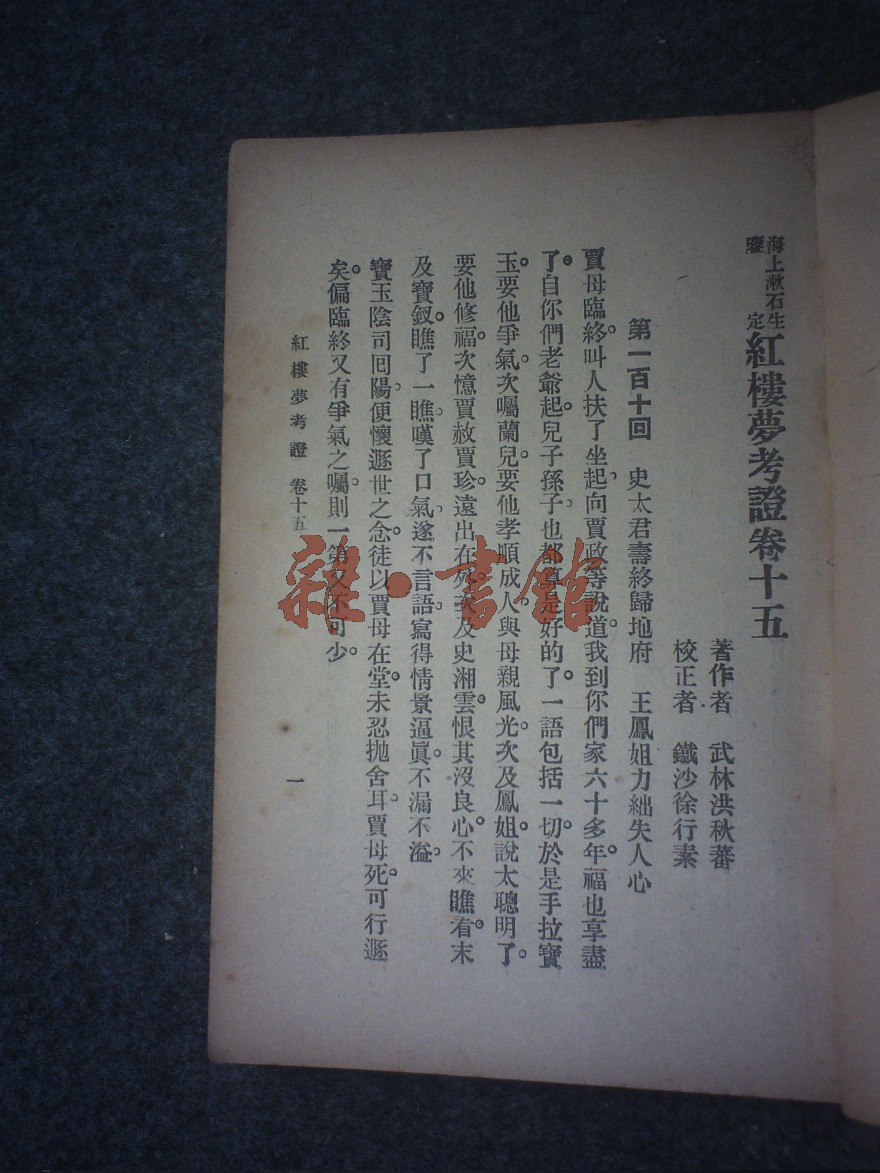 海上漱石生鑒定
紅樓夢考證卷十五
著作者　武林洪秋蕃
校正者　鐵沙徐行素
第一百十回　史太君壽終歸地府　王鳳姐力絀失人心
賈母臨終。叫人扶了坐起、向賈政等說道。我到你們家六十多年。福也享盡
了。自你們老爺起。兒子孫子、也都算是好的了。一語包括一切。於是手拉寶
玉。要他爭氣。次囑蘭兒、要他孝順成人、與母親風光。次及鳳姐。說太聰明了。
要他修福。次憶賈赦賈珍、遠出在外。次及史湘雲。恨其沒良心。不來瞧看。末
及寶釵。瞧了一瞧。嘆了口氣、遂不言語。寫得情景逼眞。不漏不溢。
寶玉陰司囘陽、便懷遯世之念。徒以賈母在堂。未忍拋舍耳。賈母死。可行遯
矣。偏臨終又有爭氣之囑。則一第又不可少。
紅樓夢考證　卷十五　一
雜·書館